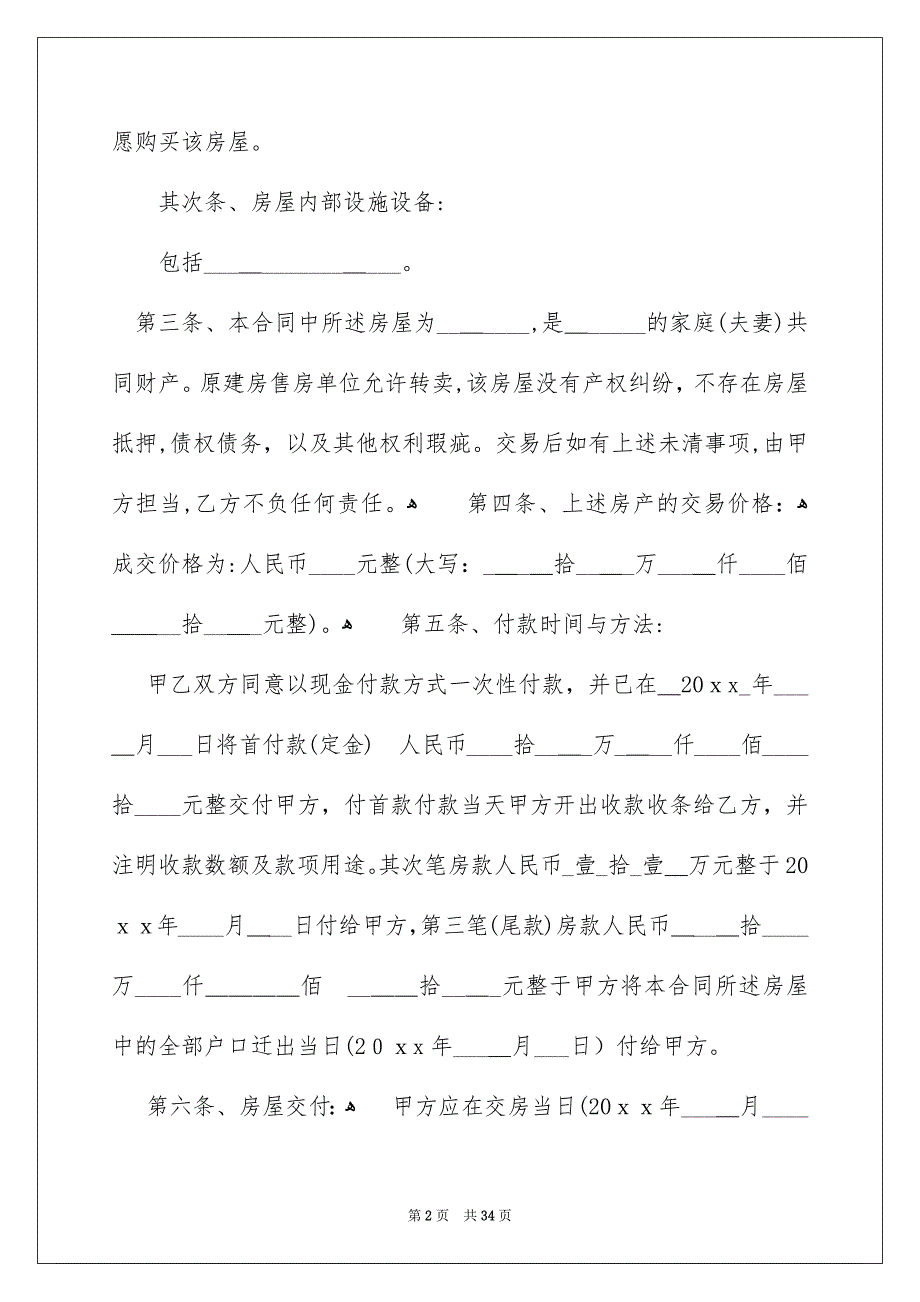 愿购买该房屋。
其次条、房屋内部设施设备:
包括_________________。
第三条、本合同中所述房屋为________,是_______的家庭(夫妻)共
同财产。原建房售房单位允许转卖,该房屋没有产权纠纷，不存在房屋
抵押,债权债务，以及其他权利瑕疵。交易后如有上述未清事项,由甲
方担当,乙方不负任何责任。ﻫ 第四条、上述房产的交易价格：ﻫ
成交价格为:人民币____元整(大写：______拾_____万_____仟____佰
______拾_____元整)。ﻫ 第五条、付款时间与方法:
甲乙双方同意以现金付款方式一次性付款，并已在__20ｘx_年___
__月___日将首付款(定金) 人民币____拾_____万_____仟____佰____
拾____元整交付甲方，付首款付款当天甲方开出收款收条给乙方，并
注明收款数额及款项用途。其次笔房款人民币_壹_拾_壹__万元整于20
ｘｘ年____月____日付给甲方,第三笔(尾款)房款人民币______拾____
万____仟________佰 ______拾_____元整于甲方将本合同所述房屋
中的全部户口迁出当日(２0 ｘx 年_____月___日）付给甲方。
第六条、房屋交付:ﻫ 甲方应在交房当日(20ｘｘ年_____月____
第 2 页 共 34 页